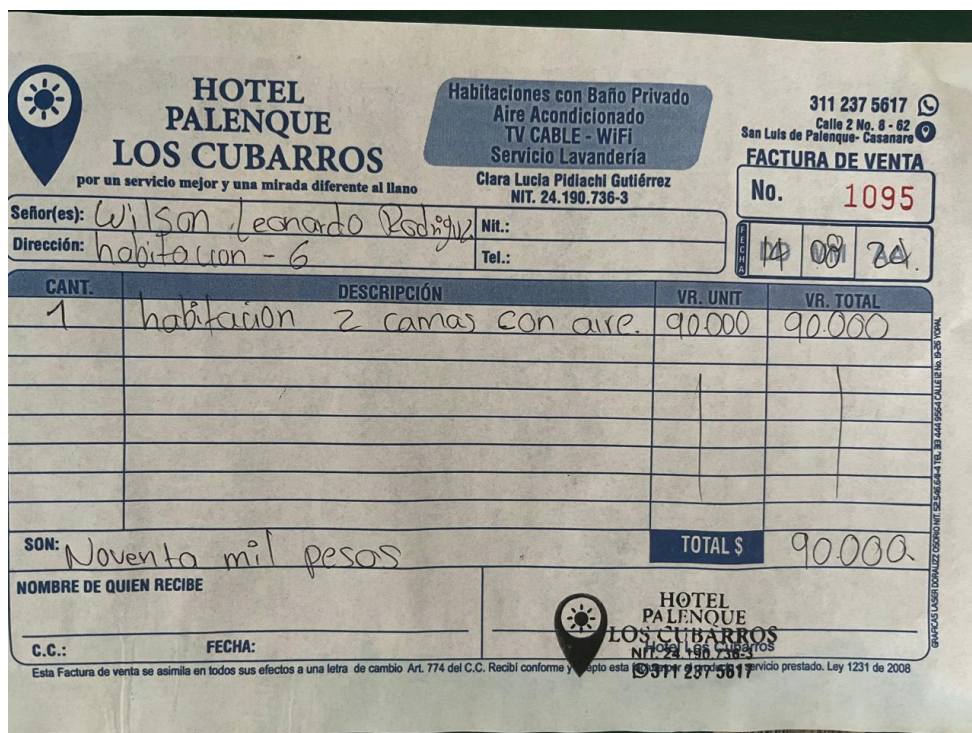 HOTEL
PALENQUE
LOS CUBARROS
por un servicio mejor y una mirada diferente al llano
Habitaciones con Baño Privado
Aire Acondicionado
TV CABLE - WiFi
Servicio Lavandería
Clara Lucia Pidiachi Gutiérrez
NIT. 24.190.736-3
311 237 5617
Calle 2 No. 8 - 62
San Luis de Palenque- Casanare
FACTURA DE VENTA
No. 1095
Señor(es): Wilson Leonardo Rodriguz Nit.:
Dirección: habitacion - 6 Tel.:
FECHA 14 08 24.
CANT. DESCRIPCIÓN VR. UNIT VR. TOTAL
1 habitacion 2 camas con aire. 90.000 90.000
SON: Noventa mil pesos TOTAL $ 90.000
NOMBRE DE QUIEN RECIBE
C.C.: FECHA:
HOTEL
PALENQUE
LOS CUBARROS
Hotel Los Cubarros
NIT. 24.190.736-3
311 237 5617
Esta Factura de venta se asimila en todos sus efectos a una letra de cambio Art. 774 del C.C. Recibí conforme y servicio prestado. Ley 1231 de 2008